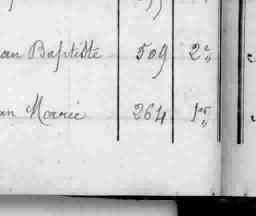 an Baptiste 509 2e
an Marie 264 1er